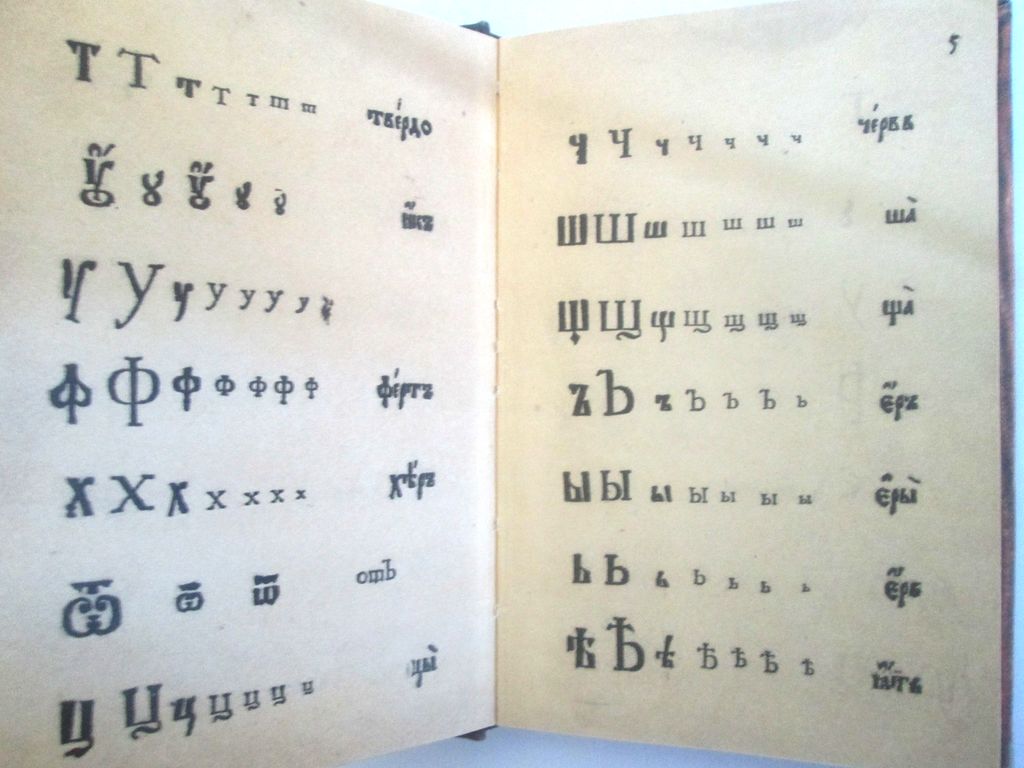 Т Т т Т т т т тве́рдо
Ꙋ ꙋ Ꙋ ꙋ ꙋ
У У у У У У у
Ф Ф ф Ф Ф Ф Ф фе́ртъ
Х Х х Х Х Х х хѣ́ръ
Ѿ ѿ ѿ отъ
Ц Ц ц Ц Ц Ц ц цы̀
5
Ч Ч ч Ч ч ч ч че́рвь
Ш Ш ш Ш Ш Ш ш ша̀
Щ Щ щ Щ щ Щ щ ща̀
Ъ Ъ ъ Ъ Ъ Ъ ъ е҆́ръ
Ы Ы ы Ы ы ы ы е҆ры̀
Ь Ь ь Ь ь ь ь е҆́рь
Ѣ Ѣ ѣ Ѣ Ѣ Ѣ ѣ ꙗ҆́ть